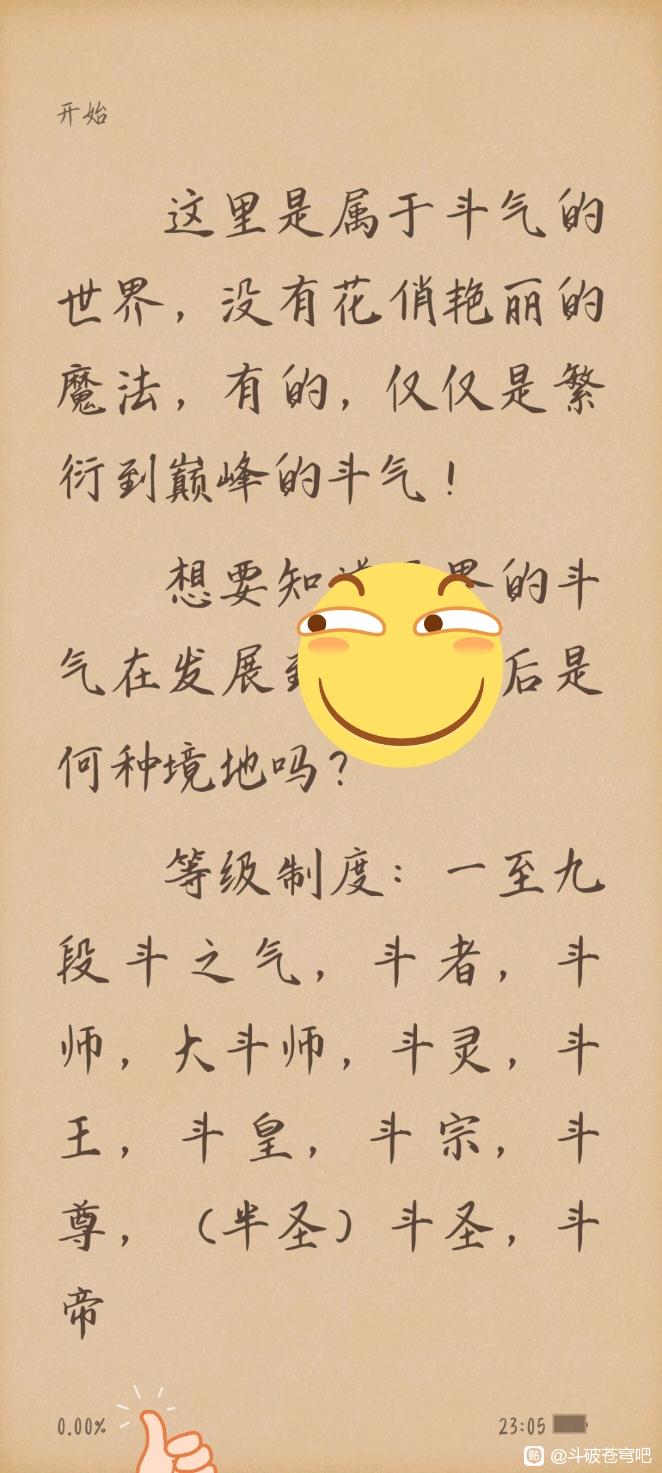 开始
这里是属于斗气的
世界，没有花俏艳丽的
魔法，有的，仅仅是繁
衍到巅峰的斗气！
想要知 界的斗
气在发展 后是
何种境地吗？
等级制度：一至九
段斗之气，斗者，斗
师，大斗师，斗灵，斗
王，斗皇，斗宗，斗
尊，（半圣）斗圣，斗
帝
0.00% 23:05
贴 @斗破苍穹吧